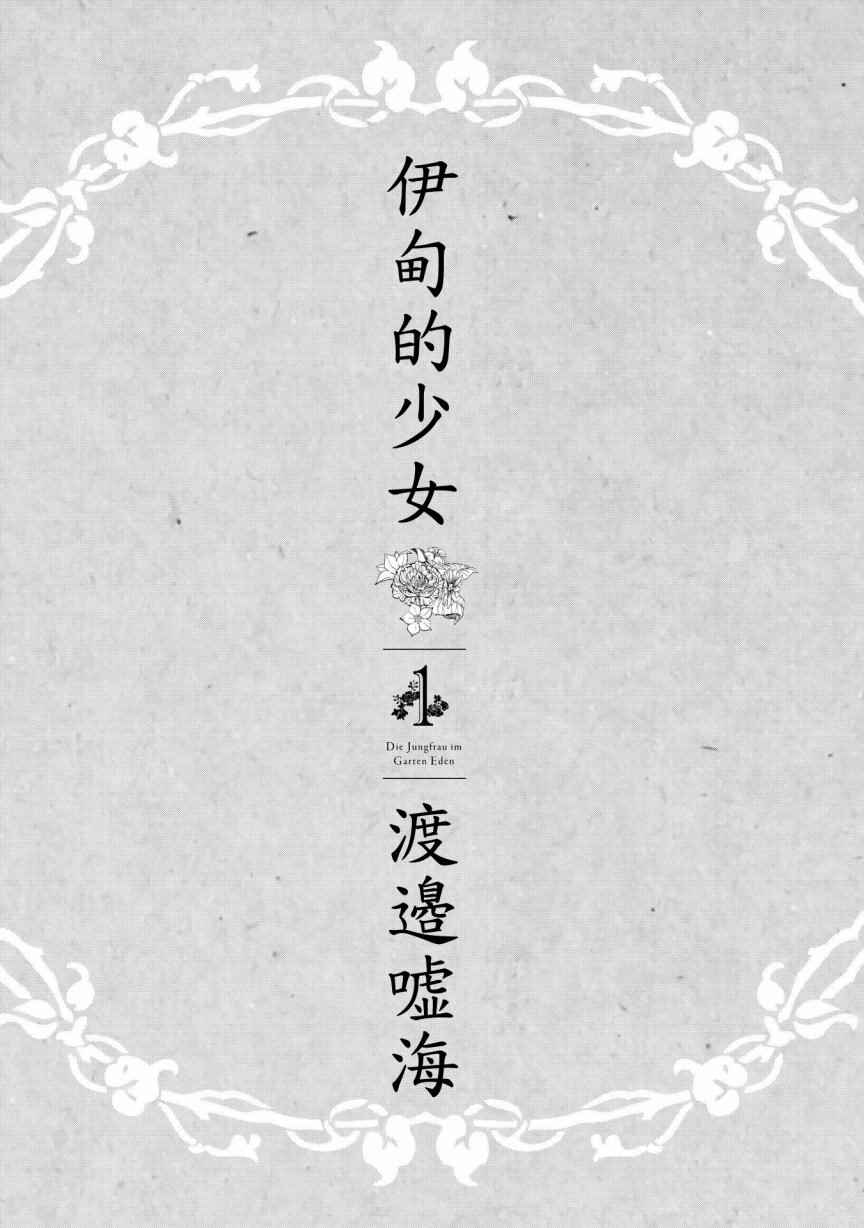 伊甸的少女
1
Die Jungfrau im
Garten Eden
渡邉嘘海